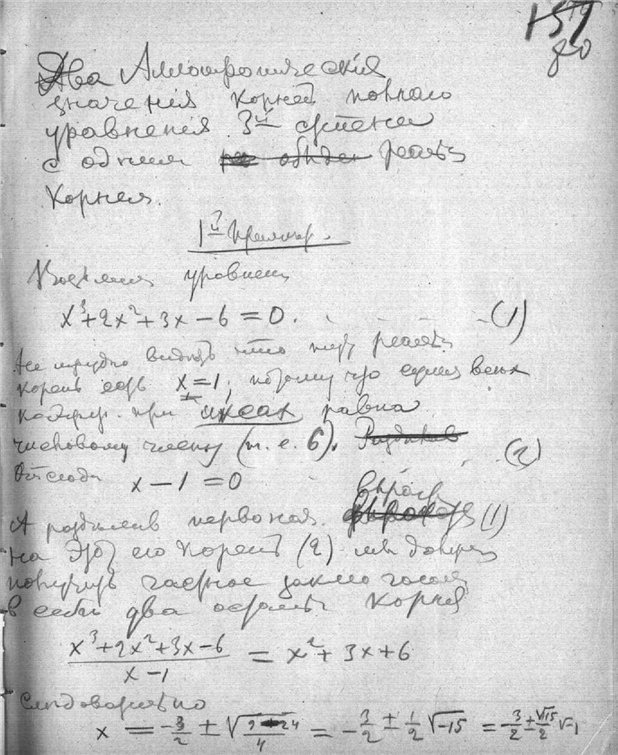 157
Два Аллотропическія
значенія корней полнаго
уравненія 3й степени
с одним реальн
корнем.
1й пример.
Возьмем уравнение
x³+2x²+3x−6=0. (1)
Не трудно видеть что реальн
корень есть x=1, потому что сумма всех
коэфиц. при иксах равна
числовому члену (т. е. 6).
Отсюда x−1=0 (2)
А разделив первонач. (1)
на этот его корень (2) мы
получим частное
в себе два остальн корня
x³+2x²+3x−6 / x−1 = x²+3x+6
Следовательно
x = −3/2 ± √ 24/4 = −3/2 ± 1/2 √−15 = −3/2 ± √15/2 √−1